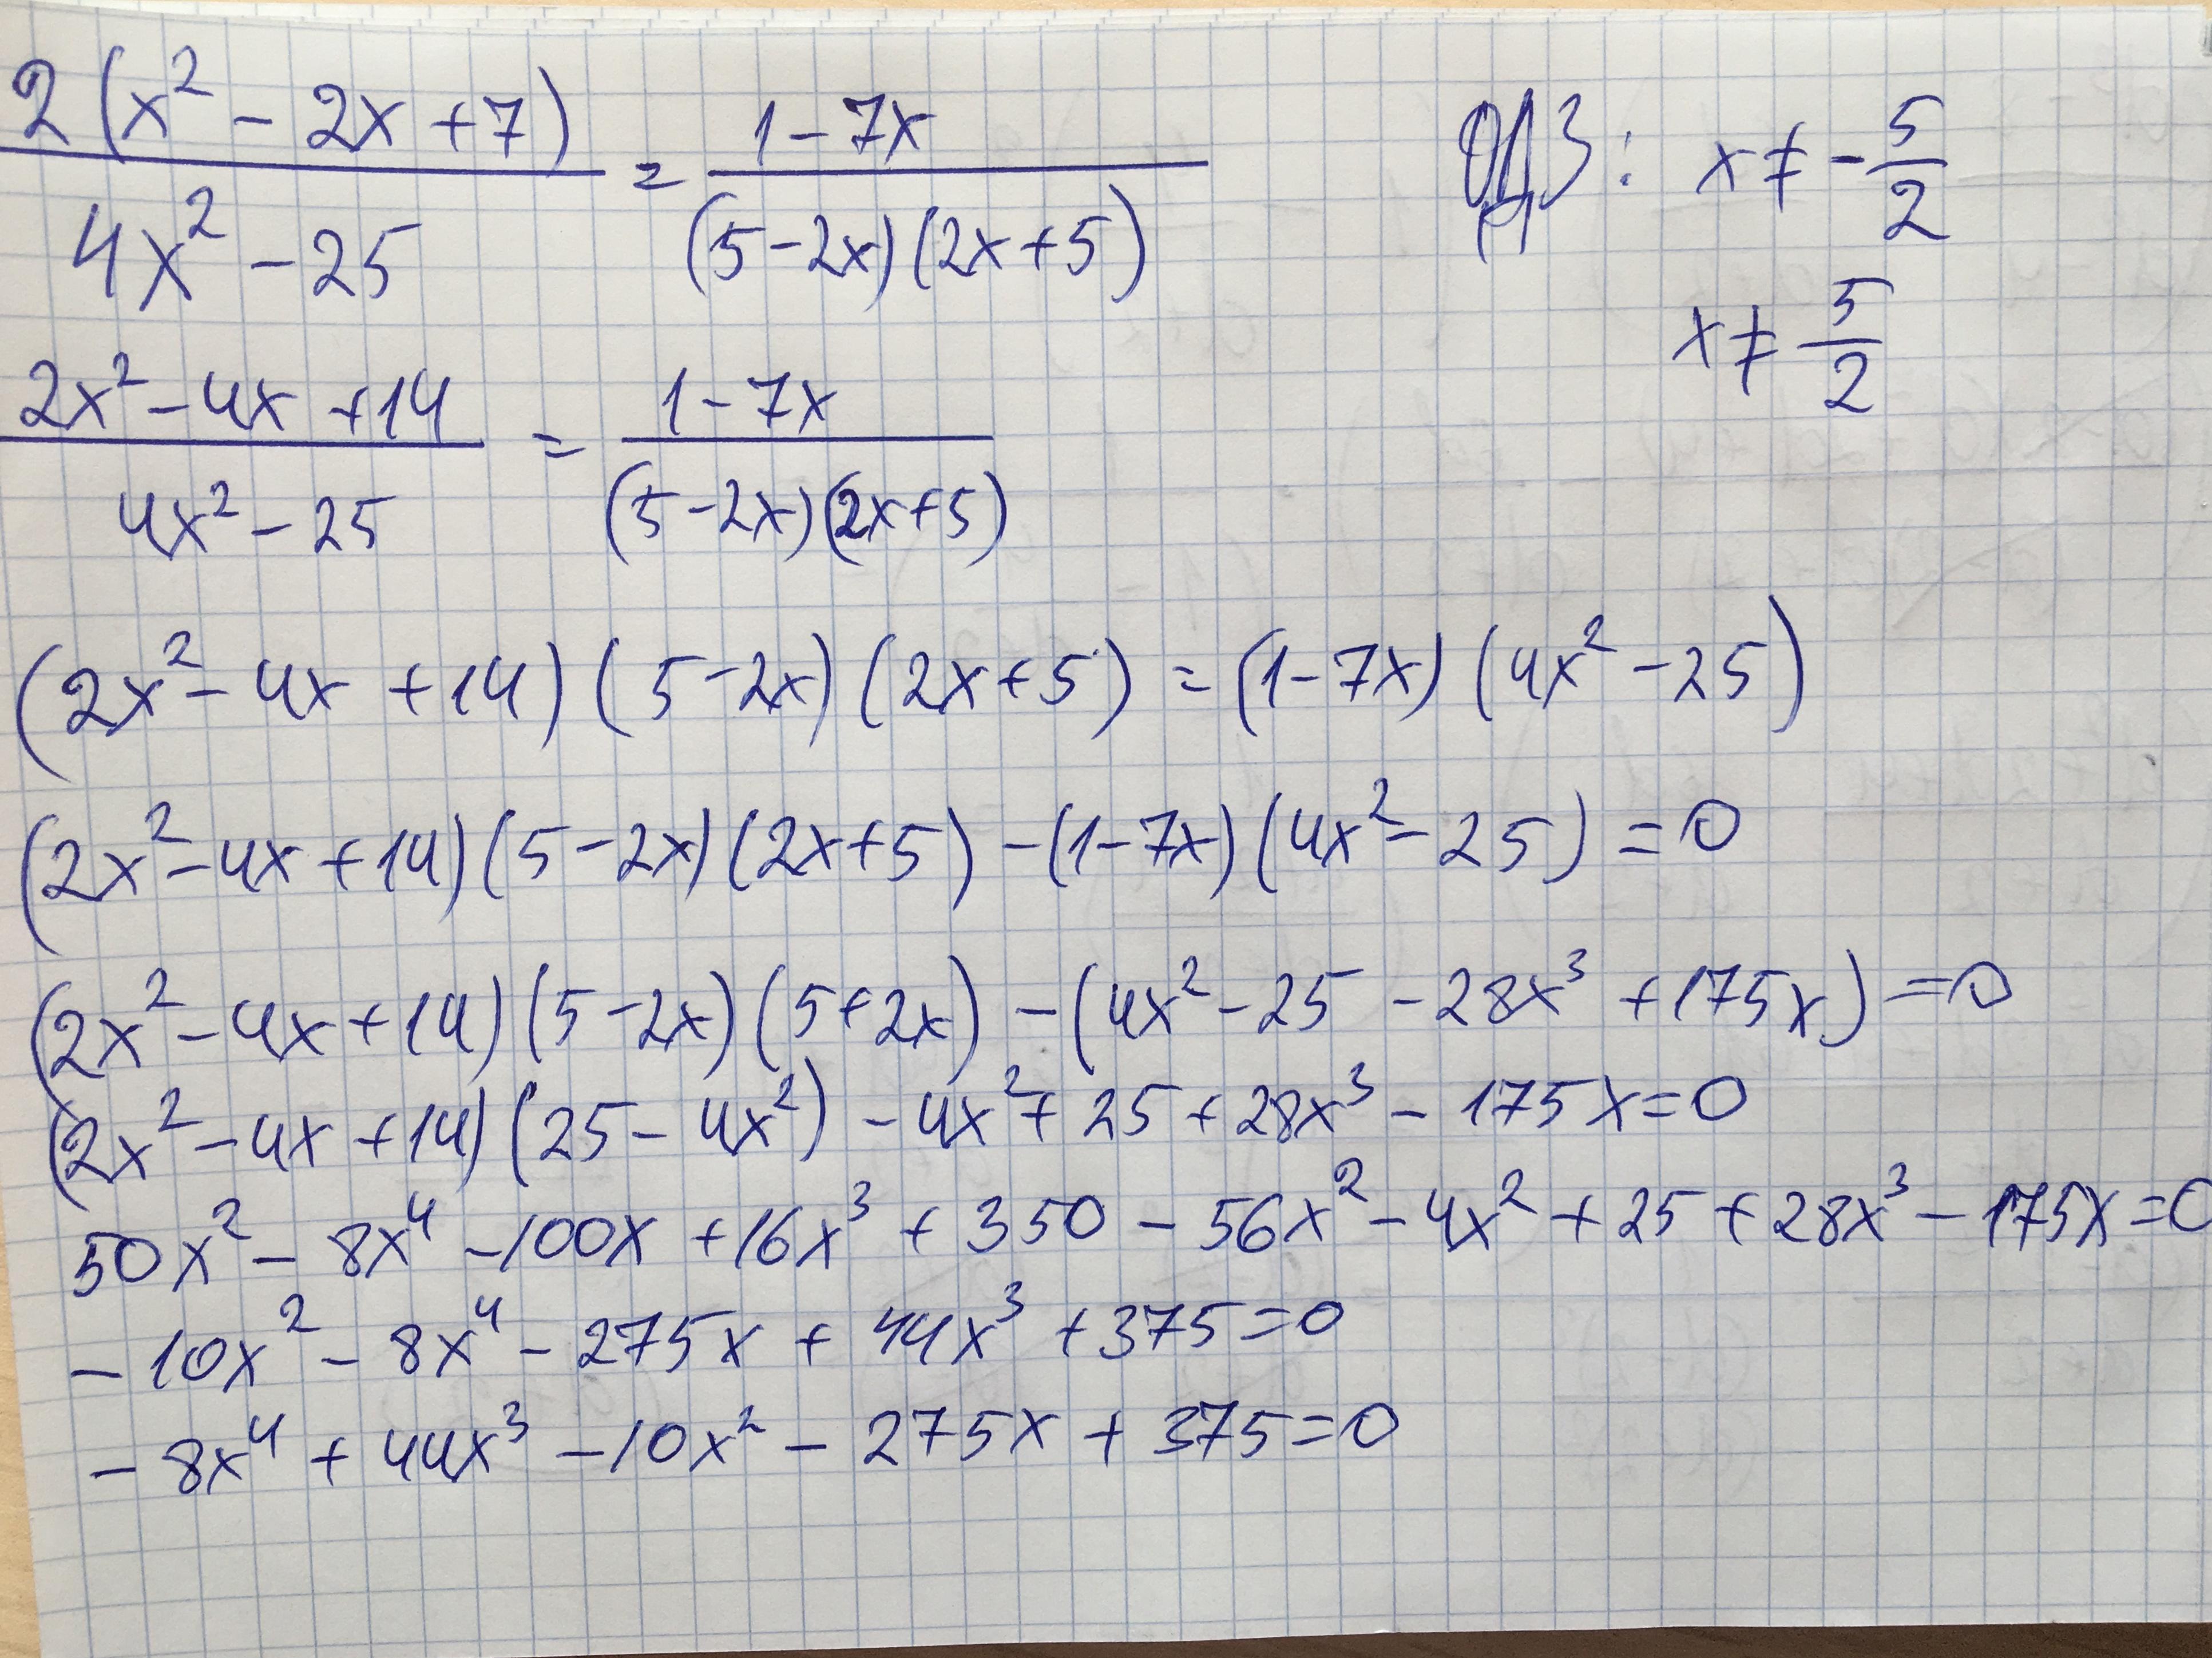 2(x² - 2x + 7) / 4x² - 25 = 1 - 7x / (5 - 2x)(2x + 5) ОДЗ: x ≠ - 5/2
x ≠ 5/2
2x² - 4x + 14 / 4x² - 25 = 1 - 7x / (5 - 2x)(2x + 5)
(2x² - 4x + 14)(5 - 2x)(2x + 5) = (1 - 7x)(4x² - 25)
(2x² - 4x + 14)(5 - 2x)(2x + 5) - (1 - 7x)(4x² - 25) = 0
(2x² - 4x + 14)(5 - 2x)(5 + 2x) - (4x² - 25 - 28x³ + 175x) = 0
(2x² - 4x + 14)(25 - 4x²) - 4x² + 25 + 28x³ - 175x = 0
50x² - 8x⁴ - 100x + 16x³ + 350 - 56x² - 4x² + 25 + 28x³ - 175x = 0
- 10x² - 8x⁴ - 275x + 44x³ + 375 = 0
- 8x⁴ + 44x³ - 10x² - 275x + 375 = 0